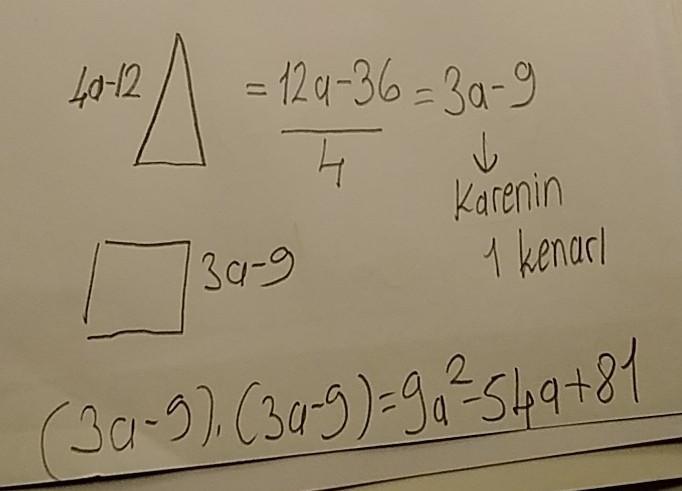 4a-12 = 12a-36 / 4 = 3a-9
↓
Karenin
1 kenarı
3a-9
(3a-9).(3a-9)=9a²-54a+81